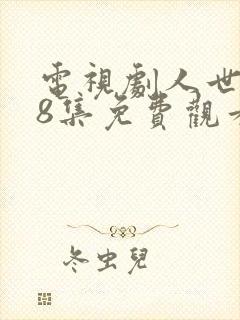 電視劇人世
8集免費觀看
冬虫兒